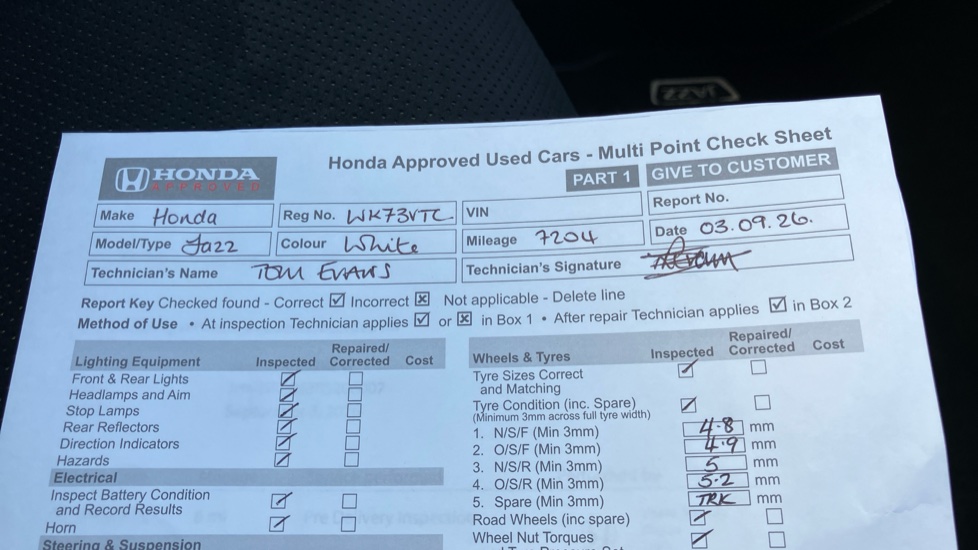 JAZZ
Honda Approved Used Cars - Multi Point Check Sheet
HONDA
APPROVED
PART 1 GIVE TO CUSTOMER
Make Honda Reg No. WK73VTC VIN Report No.
Model/Type Jazz Colour White Mileage 7204 Date 03.09.26.
Technician's Name TOM EVANS Technician's Signature
Report Key Checked found - Correct ☑ Incorrect ☒ Not applicable - Delete line
Method of Use • At inspection Technician applies ☑ or ☒ in Box 1 • After repair Technician applies ☑ in Box 2
Lighting Equipment Inspected Repaired/ Corrected Cost
Front & Rear Lights
Headlamps and Aim
Stop Lamps
Rear Reflectors
Direction Indicators
Hazards
Electrical
Inspect Battery Condition
and Record Results
Horn
Steering & Suspension
Wheels & Tyres Inspected Repaired/ Corrected Cost
Tyre Sizes Correct
and Matching
Tyre Condition (inc. Spare)
(Minimum 3mm across full tyre width)
1. N/S/F (Min 3mm) 4.8 mm
2. O/S/F (Min 3mm) 4.9 mm
3. N/S/R (Min 3mm) 5 mm
4. O/S/R (Min 3mm) 5.2 mm
5. Spare (Min 3mm) TRK mm
Road Wheels (inc spare)
Wheel Nut Torques